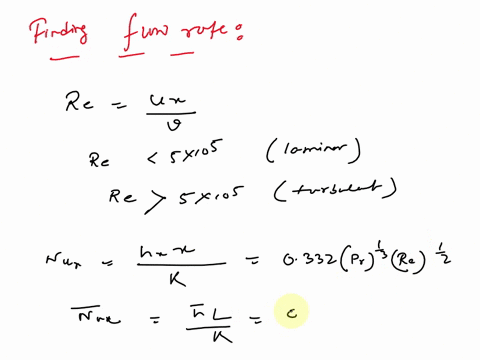 Finding flow rate:
Re = ux/ν
Re < 5×10⁵ (laminar)
Re > 5×10⁵ (turbulent)
Nux = hx x/K = 0.332 (Pr)^1/3 (Re)^1/2
N̅ux = h̅L/K =